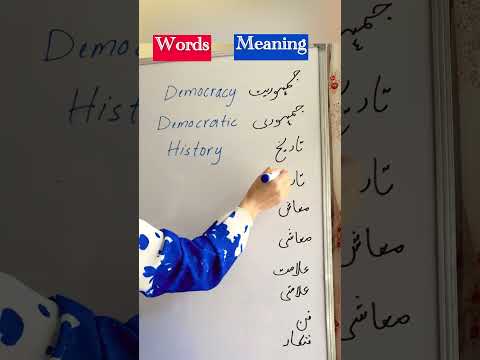 Words Meaning
Democracy جمہوریت
Democratic جمہوری
History تاریخ
معاش
معاشی
علامت
علامتی
فن
فنکار